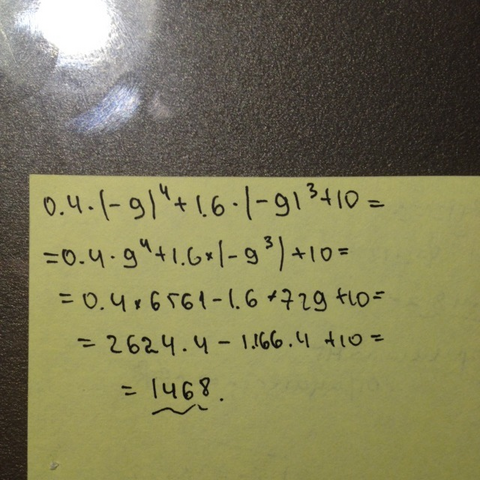 0.4·(-9)⁴+1.6·(-9)³+10=
=0.4·9⁴+1.6×(-9³)+10=
=0.4×6561-1.6×729+10=
=2624.4-1166.4+10=
=1468.